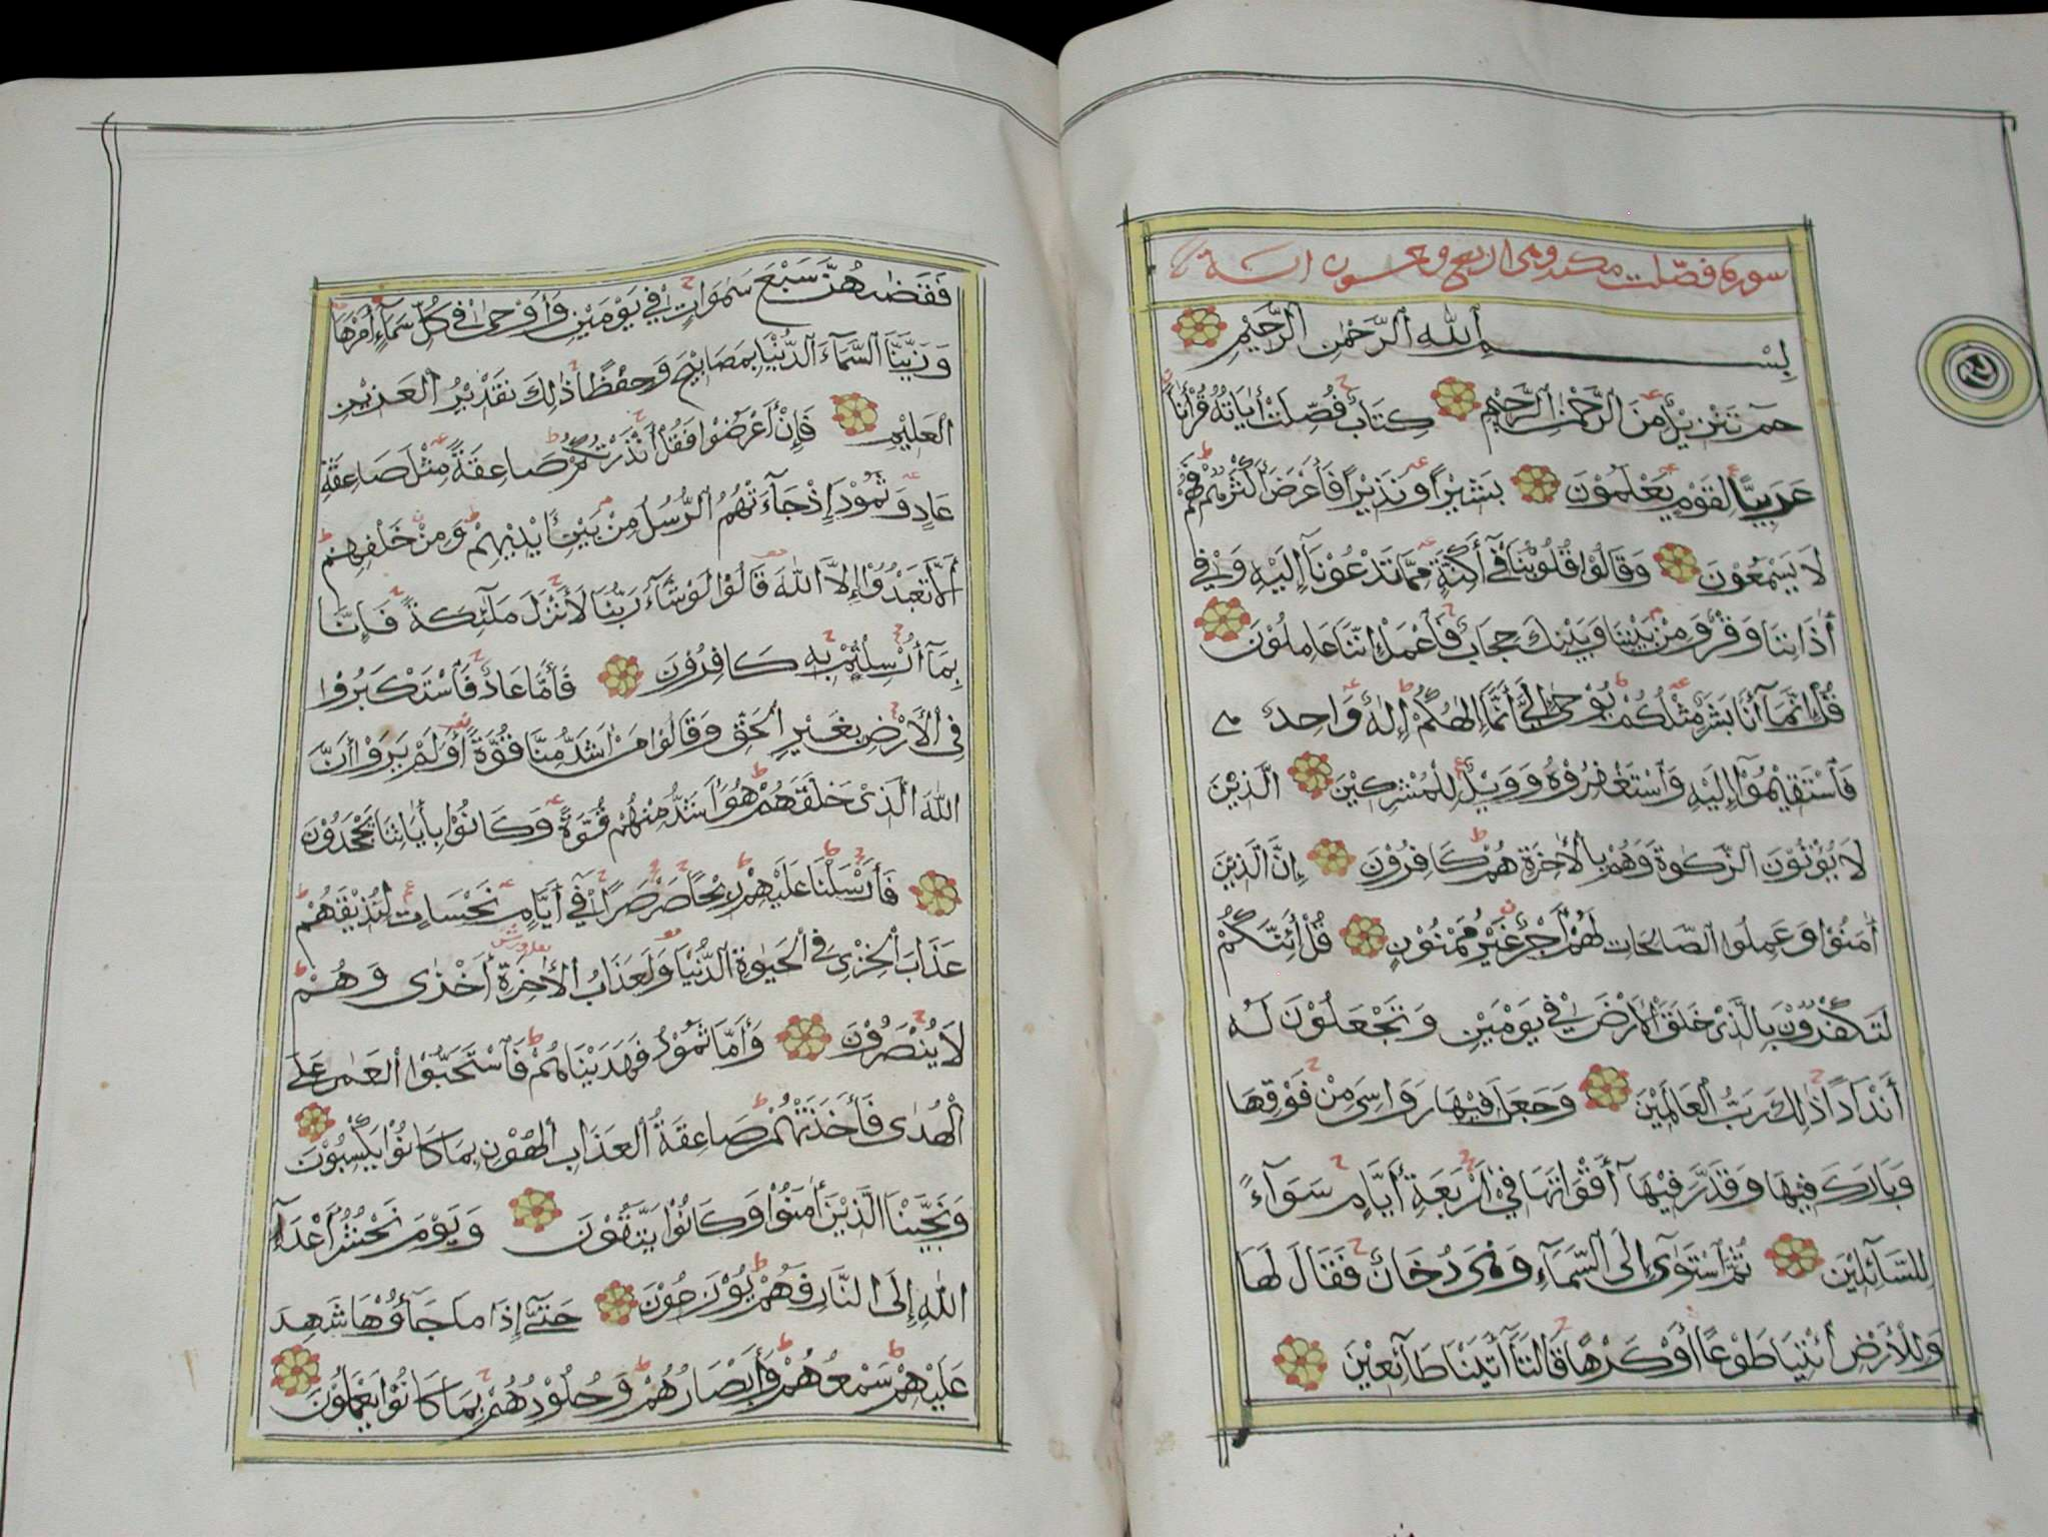 سورة فصّلت مكية وهي اربع وخمسون اية
بِسْمِ ٱللهِ ٱلرَّحْمٰنِ ٱلرَّحِيْمِ
حٰمۤ تَنْزِيْلٌ مِنَ ٱلرَّحْمٰنِ ٱلرَّحِيْمِ كِتَابٌ فُصِّلَتْ أٰيَاتُهُ قُرْأٰناً
عَرَبِيًّا لِقَوْمٍ يَعْلَمُوْنَ بَشِيْرًا وَنَذِيْرًا فَأَعْرَضَ أَكْثَرُهُمْ فَهُمْ
لَا يَسْمَعُوْنَ وَقَالُوْا قُلُوْبُنَا فِىۤ أَكِنَّةٍ مِمَّا تَدْعُوْنَاۤ إِلَيْهِ وَفِىۤ
أٰذَانِنَا وَقْرٌ وَمِنْ بَيْنِنَا وَبَيْنِكَ حِجَابٌ فَٱعْمَلْ إِنَّنَا عَامِلُوْنَ
قُلْ إِنَّمَاۤ أَنَا بَشَرٌ مِثْلُكُمْ يُوْحٰىۤ إِلَىَّ أَنَّمَاۤ إِلٰهُكُمْ إِلٰهٌ وَاحِدٌ
فَٱسْتَقِيْمُوْۤا إِلَيْهِ وَٱسْتَغْفِرُوْهُ وَوَيْلٌ لِلْمُشْرِكِيْنَ الَّذِيْنَ
لَا يُؤْتُوْنَ ٱلزَّكٰوةَ وَهُمْ بِٱلْأٰخِرَةِ هُمْ كَافِرُوْنَ إِنَّ الَّذِيْنَ
أٰمَنُوْا وَعَمِلُوا ٱلصَّالِحَاتِ لَهُمْ أَجْرٌ غَيْرُ مَمْنُوْنٍ قُلْ أَئِنَّكُمْ
لَتَكْفُرُوْنَ بِٱلَّذِىْ خَلَقَ ٱلْأَرْضَ فِىْ يَوْمَيْنِ وَتَجْعَلُوْنَ لَهُ
أَنْدَادًا ذٰلِكَ رَبُّ ٱلْعَالَمِيْنَ وَجَعَلَ فِيْهَا رَوَاسِىَ مِنْ فَوْقِهَا
وَبَارَكَ فِيْهَا وَقَدَّرَ فِيْهَاۤ أَقْوَاتَهَا فِىْۤ أَرْبَعَةِ أَيَّامٍ سَوَاۤءً
لِلسَّاۤئِلِيْنَ ثُمَّ ٱسْتَوٰىۤ إِلَى ٱلسَّمَاۤءِ وَهِىَ دُخَانٌ فَقَالَ لَهَا
وَلِلْأَرْضِ ٱئْتِيَا طَوْعًا أَوْ كَرْهًا قَالَتَاۤ أَتَيْنَا طَاۤئِعِيْنَ
فَقَضٰىهُنَّ سَبْعَ سَمٰوَاتٍ فِىْ يَوْمَيْنِ وَأَوْحٰى فِىْ كُلِّ سَمَاۤءٍ أَمْرَهَا
وَزَيَّنَّا ٱلسَّمَاۤءَ ٱلدُّنْيَا بِمَصَابِيْحَ وَحِفْظًا ذٰلِكَ تَقْدِيْرُ ٱلْعَزِيْزِ
ٱلْعَلِيْمِ فَإِنْ أَعْرَضُوْا فَقُلْ أَنْذَرْتُكُمْ صَاعِقَةً مِثْلَ صَاعِقَةِ
عَادٍ وَثَمُوْدَ إِذْ جَاۤءَتْهُمُ ٱلرُّسُلُ مِنْ بَيْنِ أَيْدِيْهِمْ وَمِنْ خَلْفِهِمْ
أَلَّا تَعْبُدُوْۤا إِلَّا ٱللهَ قَالُوْا لَوْ شَاۤءَ رَبُّنَا لَأَنْزَلَ مَلَاۤئِكَةً فَإِنَّا
بِمَاۤ أُرْسِلْتُمْ بِهِ كَافِرُوْنَ فَأَمَّا عَادٌ فَٱسْتَكْبَرُوْا
فِى ٱلْأَرْضِ بِغَيْرِ ٱلْحَقِّ وَقَالُوْا مَنْ أَشَدُّ مِنَّا قُوَّةً أَوَلَمْ يَرَوْا أَنَّ
ٱللهَ ٱلَّذِىْ خَلَقَهُمْ هُوَ أَشَدُّ مِنْهُمْ قُوَّةً وَكَانُوْا بِأٰيَاتِنَا يَجْحَدُوْنَ
فَأَرْسَلْنَا عَلَيْهِمْ رِيْحًا صَرْصَرًا فِىْۤ أَيَّامٍ نَحِسَاتٍ لِنُذِيْقَهُمْ
عَذَابَ ٱلْخِزْىِ فِى ٱلْحَيٰوةِ ٱلدُّنْيَا وَلَعَذَابُ ٱلْأٰخِرَةِ أَخْزٰى وَهُمْ
لَا يُنْصَرُوْنَ وَأَمَّا ثَمُوْدُ فَهَدَيْنَاهُمْ فَٱسْتَحَبُّوْا ٱلْعَمٰى عَلَى
ٱلْهُدٰى فَأَخَذَتْهُمْ صَاعِقَةُ ٱلْعَذَابِ ٱلْهُوْنِ بِمَا كَانُوْا يَكْسِبُوْنَ
وَنَجَّيْنَا ٱلَّذِيْنَ أٰمَنُوْا وَكَانُوْا يَتَّقُوْنَ وَيَوْمَ نَحْشُرُ أَعْدَاۤءَ
ٱللهِ إِلَى ٱلنَّارِ فَهُمْ يُوْزَعُوْنَ حَتّٰىۤ إِذَا مَا جَاۤؤُوْهَا شَهِدَ
عَلَيْهِمْ سَمْعُهُمْ وَأَبْصَارُهُمْ وَجُلُوْدُهُمْ بِمَا كَانُوْا يَعْمَلُوْنَ